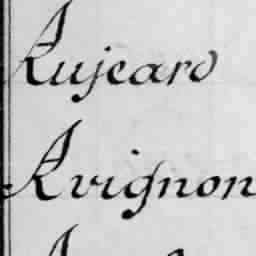 Aujeard
Avignon